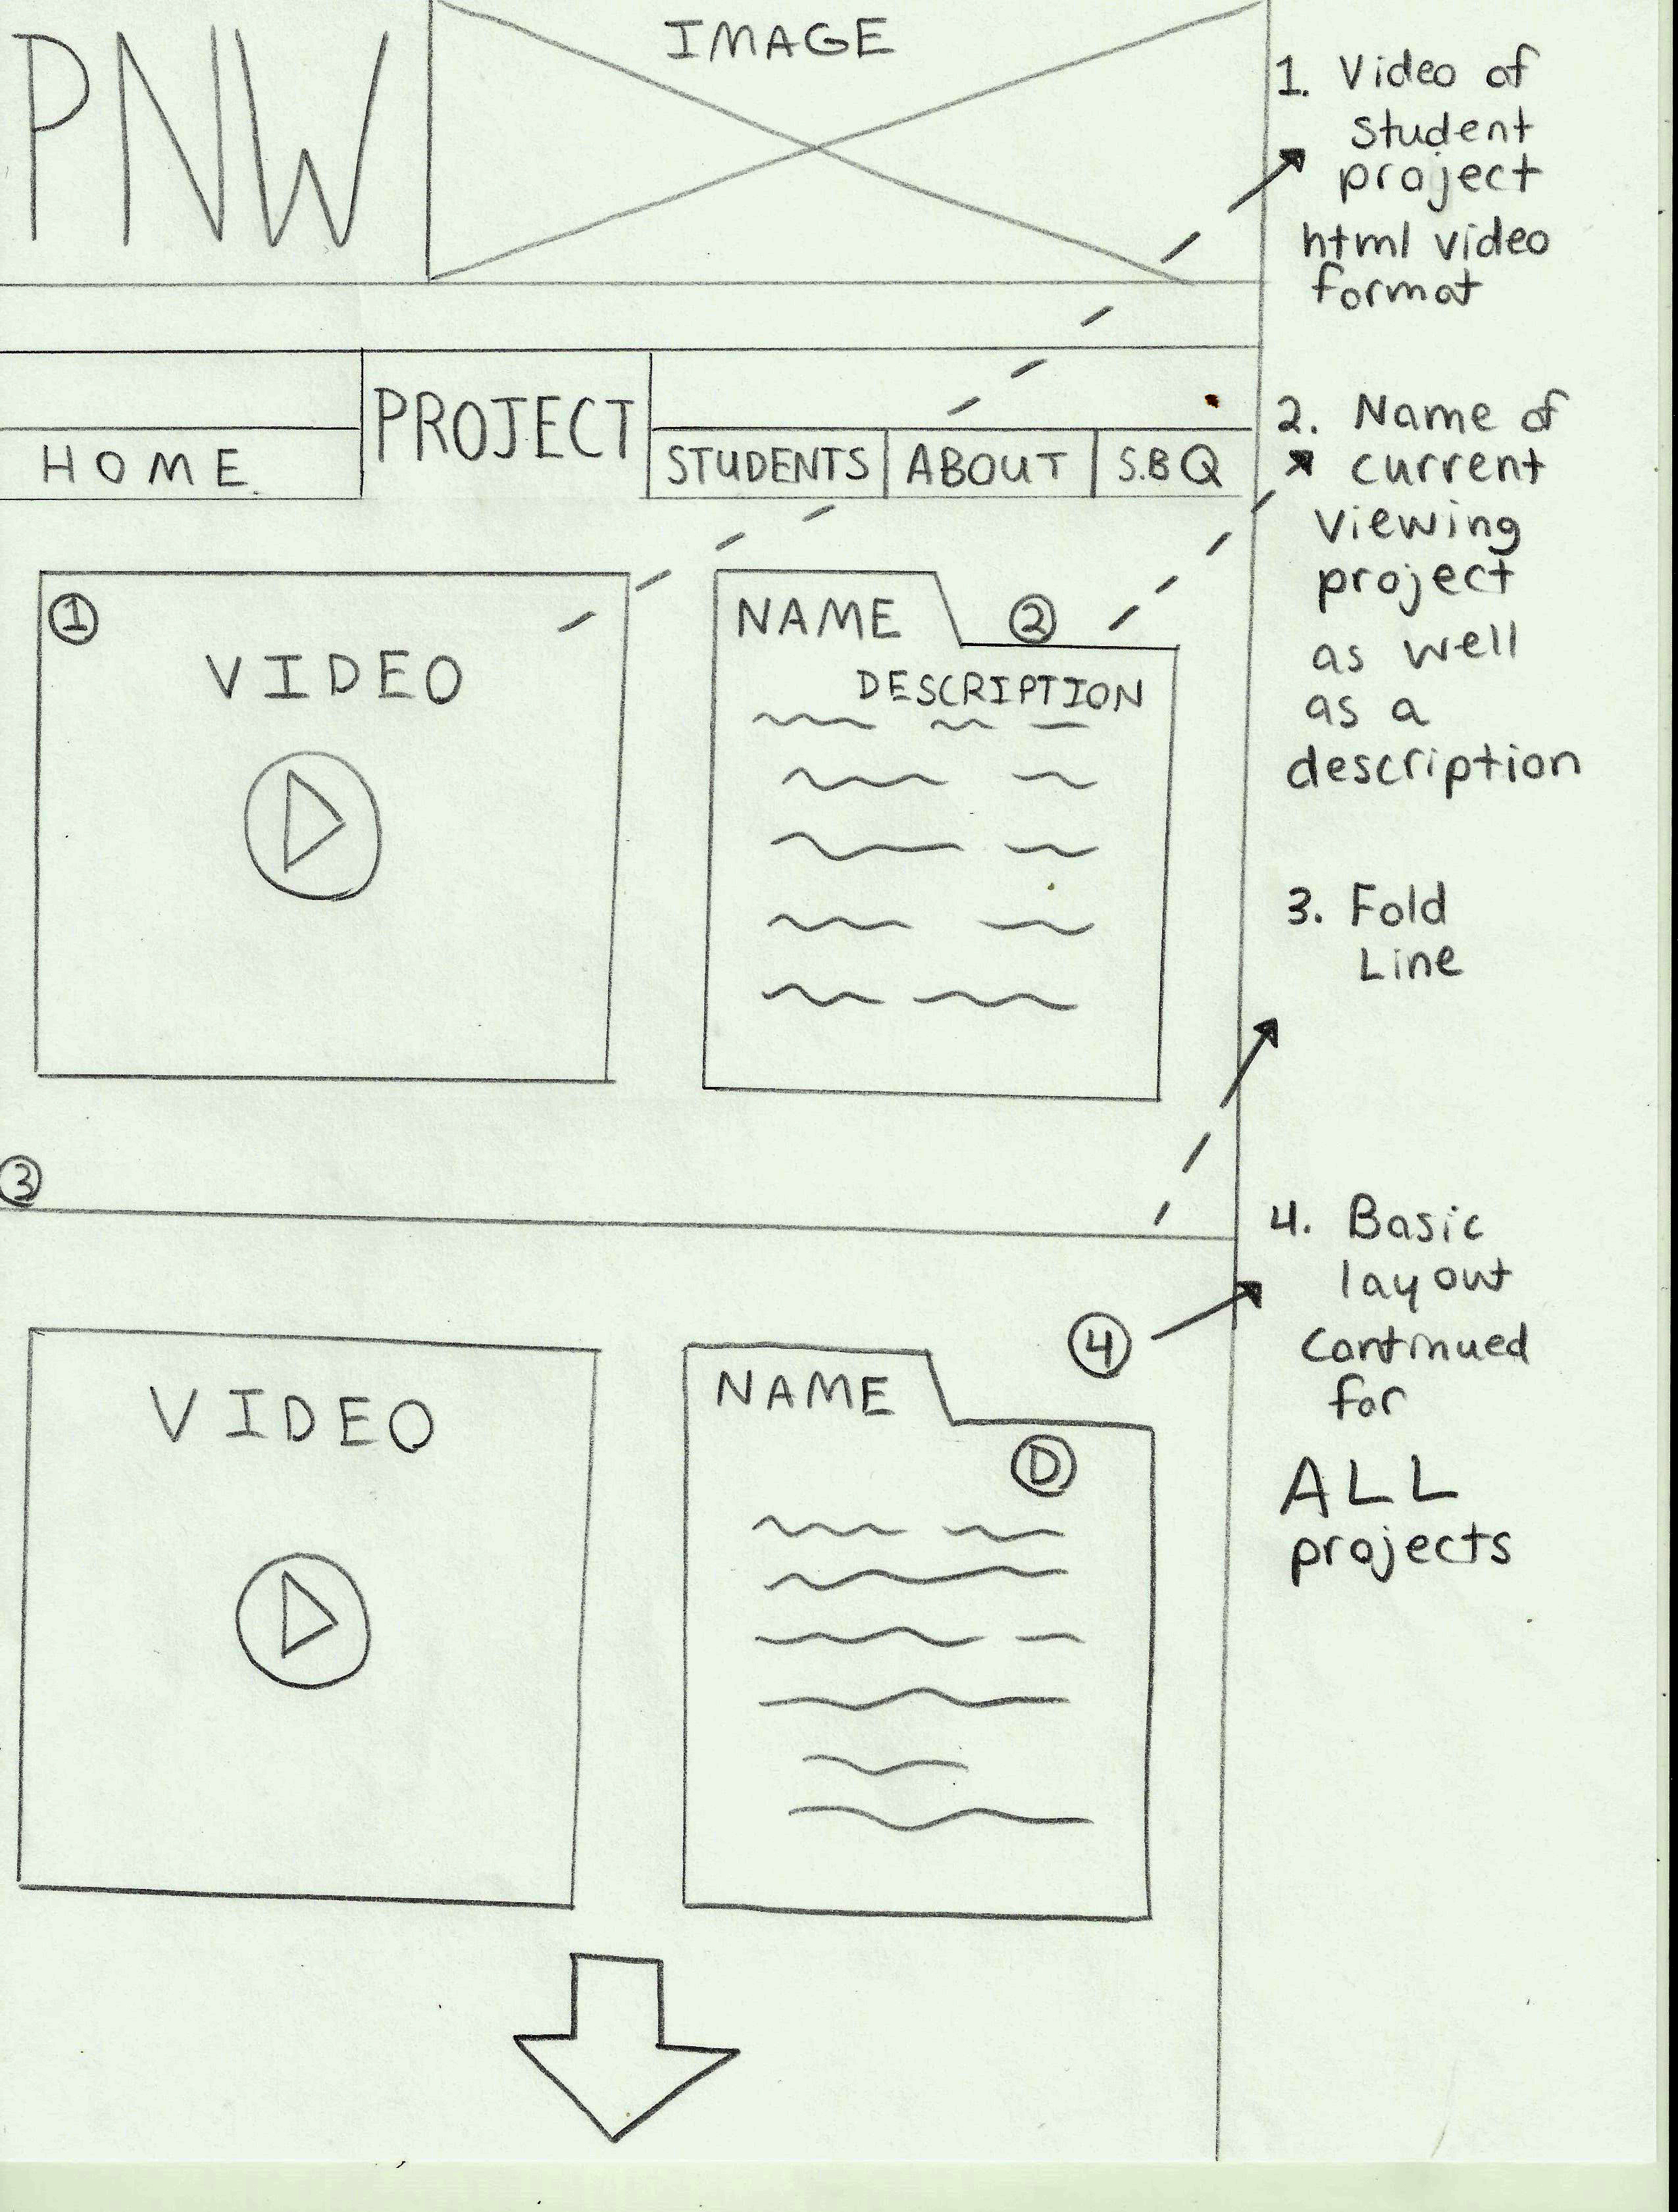 PNW
IMAGE
HOME
PROJECT
STUDENTS
ABOUT
S.BQ
1
VIDEO
NAME
2
DESCRIPTION
3
VIDEO
NAME
4
D
1. Video of
student
project
html video
format
2. Name of
current
viewing
project
as well
as a
description
3. Fold
Line
4. Basic
layout
continued
for
ALL
projects